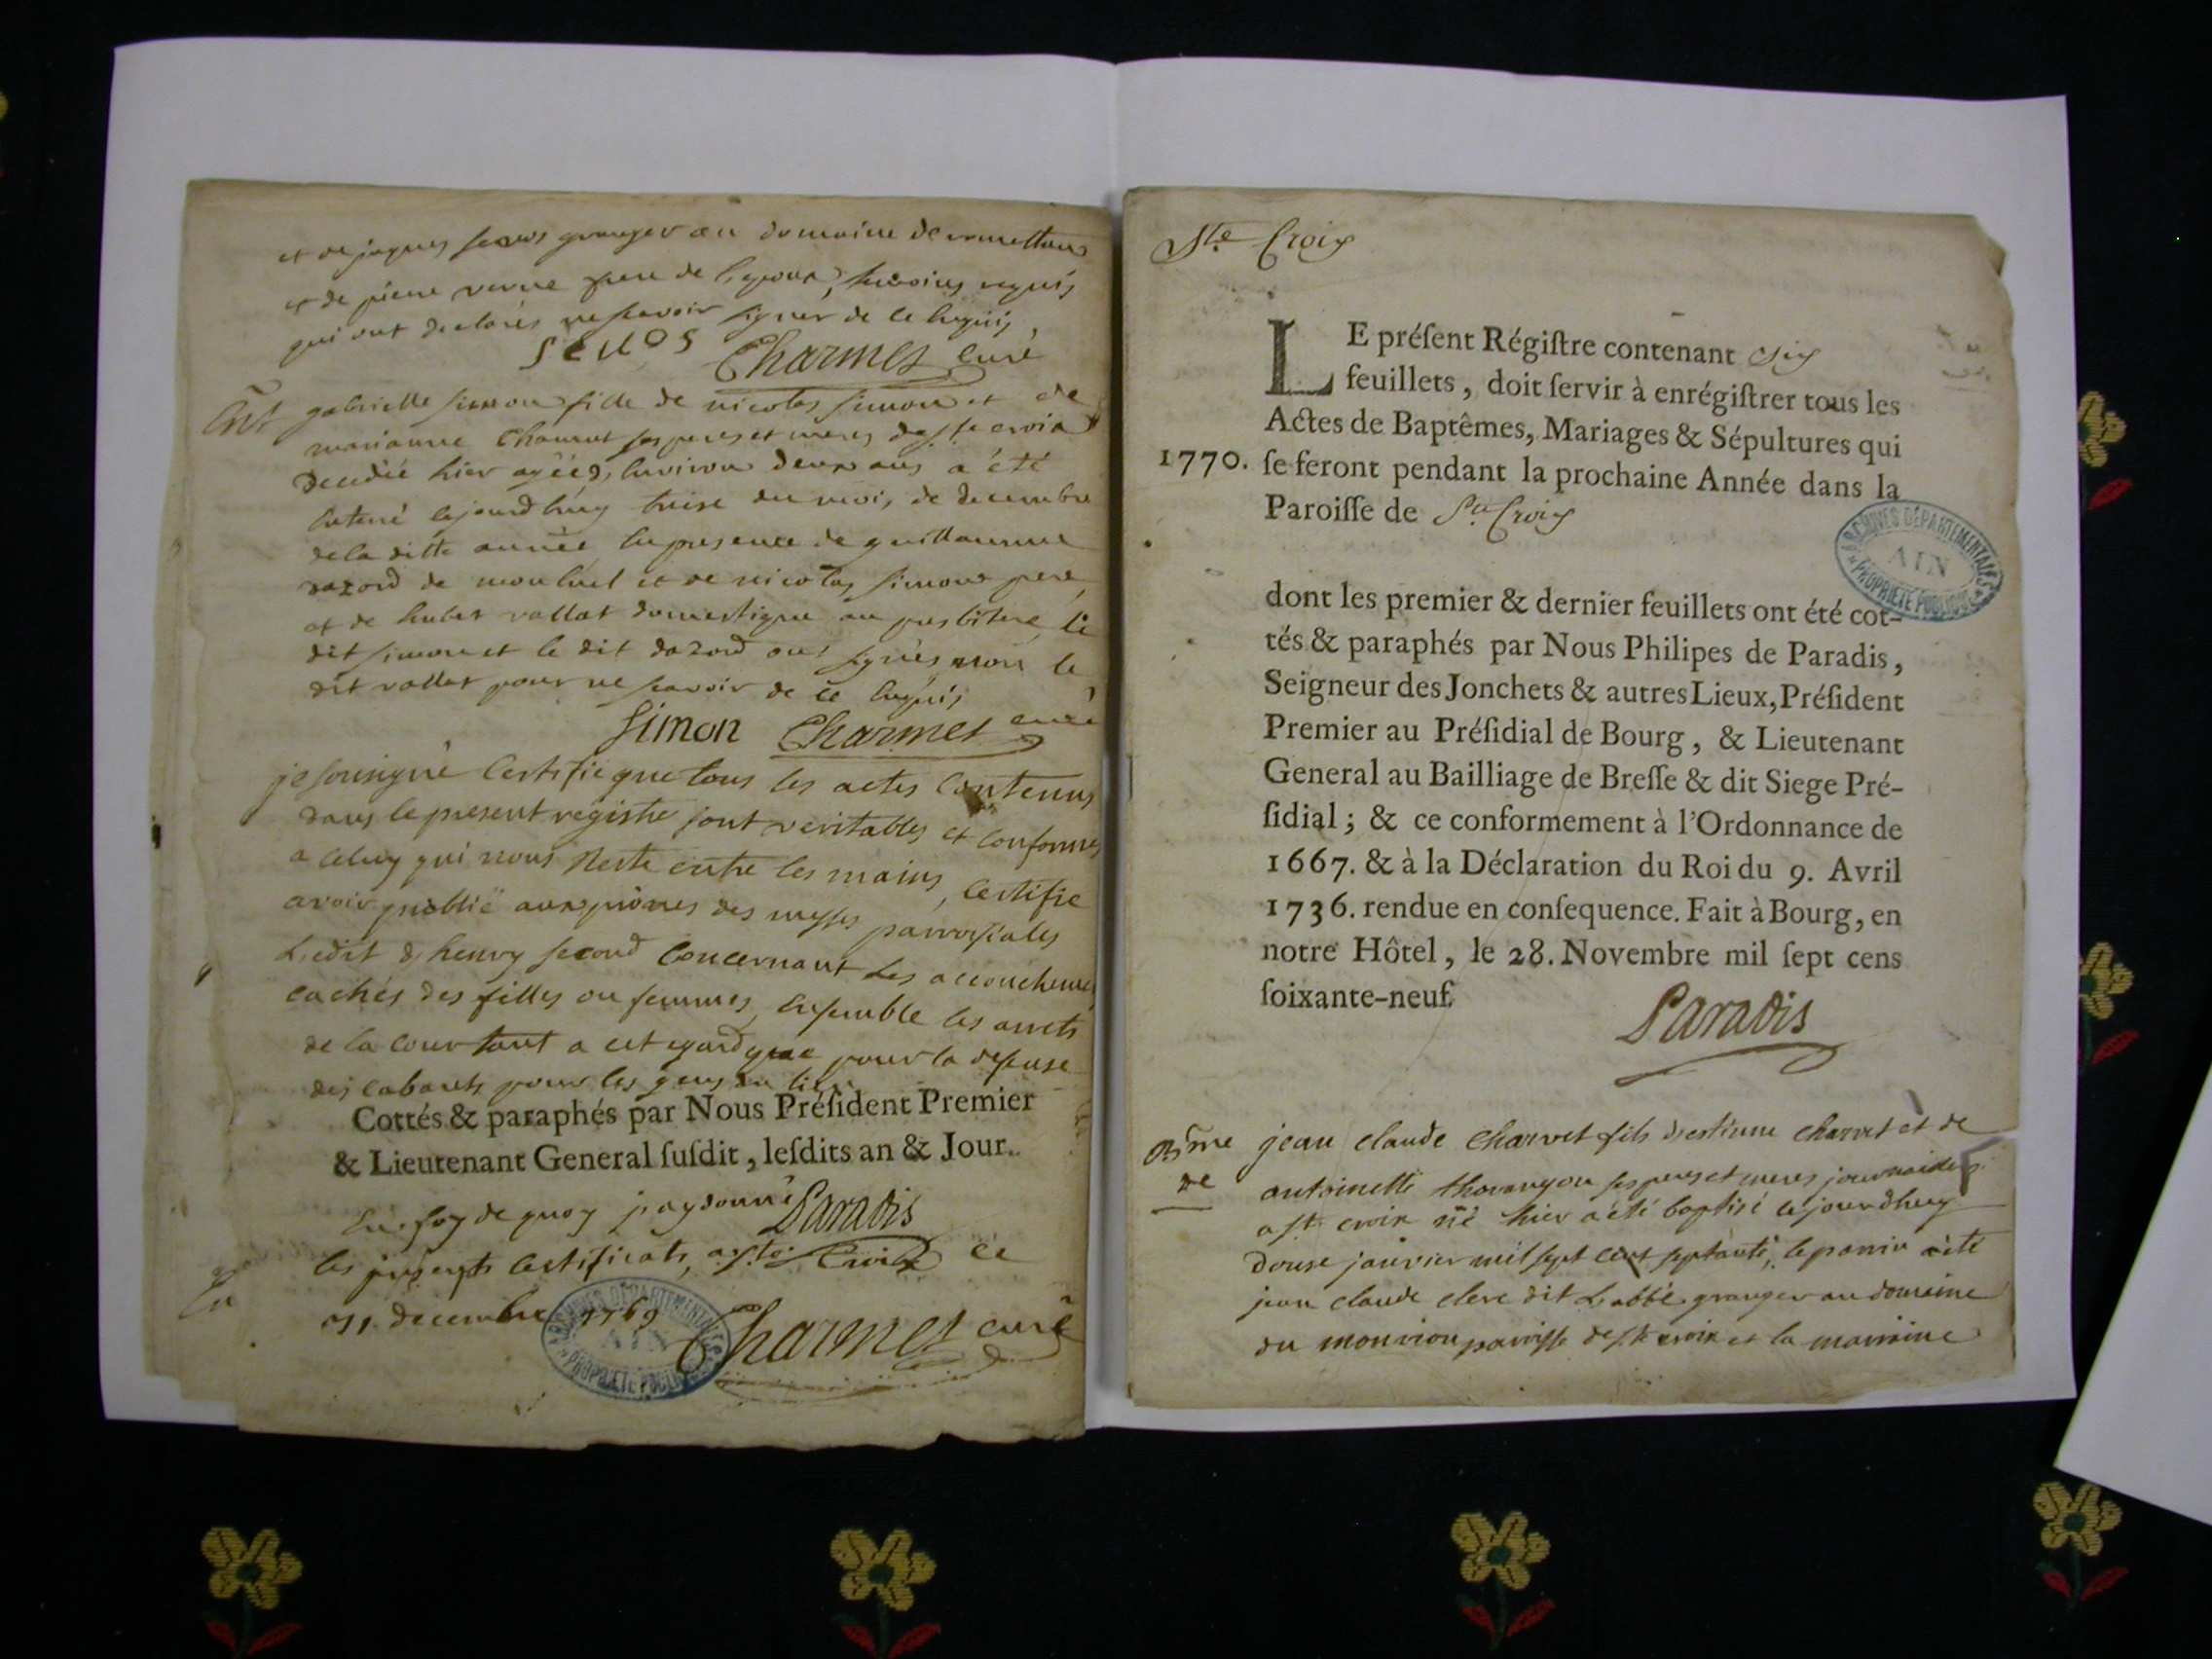 et de jaques granger au domaine de
et de pierre verne frere de l'epoux, temoins requis
qui ont declarés ne scavoir signer de ce enquis,
Charmet curé
Ent gabrielle simon fille de nicolas simon et de
marianne ses peres et meres de ste croix
decedée hier agéé d'environ deux ans a été
enterré cejourdhuy treise du mois de decembre
de la ditte année en presence de guillaume
dazord de montluel et de nicolas simon pere,
et de hubert vallat domestique au presbitere le
dit simon et le dit dazord ont signés non le
dit vallat pour ne scavoir de ce enquis,
Simon Charmet curé
je sousigné Certifie que tous les actes Contenus
dans le present registre sont veritables et conformes
a celuy qui nous Reste entre les mains, certifie
avoir publié aux prônes des messes parroissiales
L'edit d'henry second Concernant Les accouchemens
cachés des filles ou femmes, ensemble les arrets
de la cour tant a cet egard que pour la defense
des cabarets pour les gens du lieu
Cottés & paraphés par Nous Préſident Premier
& Lieutenant General ſuſdit, leſdits an & Jour.
En foy de quoy j'ay donné Paradis
les presents Certificats, a ste Croix ce
31 decembre 1769 Charmet curé
ARCHIVES DÉPARTEMENTALES
AIN
PROPRIÉTÉ PUBLIQUE
Ste Croix
LE préſent Régiſtre contenant six
feuillets, doit ſervir à enrégiſtrer tous les
Actes de Baptêmes, Mariages & Sépultures qui
1770. ſe feront pendant la prochaine Année dans la
Paroiſſe de Ste Croix
ARCHIVES DÉPARTEMENTALES
AIN
PROPRIÉTÉ PUBLIQUE
dont les premier & dernier feuillets ont été cot-
tés & paraphés par Nous Philipes de Paradis,
Seigneur des Jonchets & autres Lieux, Préſident
Premier au Préſidial de Bourg, & Lieutenant
General au Bailliage de Breſſe & dit Siege Pré-
ſidial; & ce conformement à l'Ordonnance de
1667. & à la Déclaration du Roi du 9. Avril
1736. rendue en conſequence. Fait à Bourg, en
notre Hôtel, le 28. Novembre mil ſept cens
ſoixante-neuf.
Paradis
Bme jean claude Charvet fils d'estienne charvet et de
de antoinette ses peres et meres
a ste croix né hier a été baptisé cejourdhuy
douse janvier mil sept cent septante, le parrin a été
jean claude clerc dit L'abbé granger au domaine
du parroisse de ste croix et la marraine